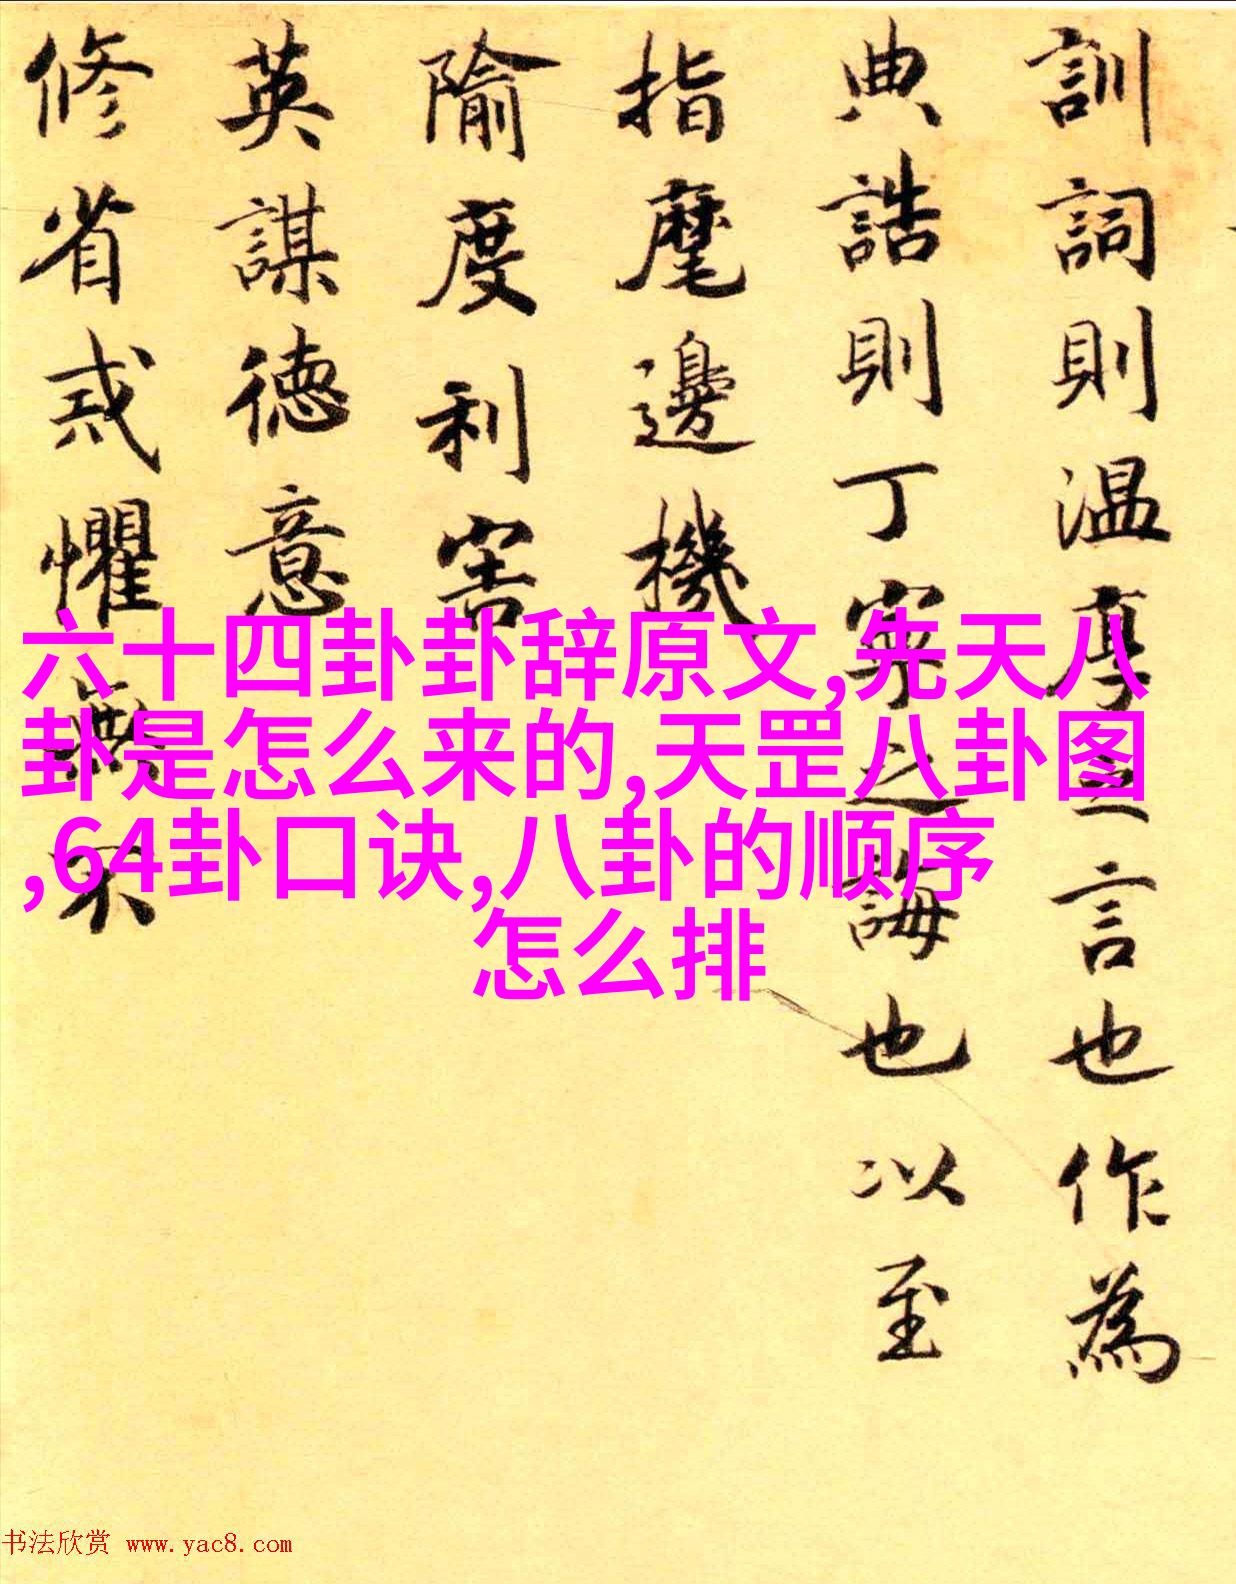 訓詞則温厚之言也作為
典誥則丁寧之誨也以至
指麾邊機
隃度利害
英謀德意
修省戒懼無不
六十四卦卦辞原文,先天八
卦是怎么来的,天罡八卦图
,64卦口诀,八卦的顺序
怎么排
书法欣赏 www.yac8.com